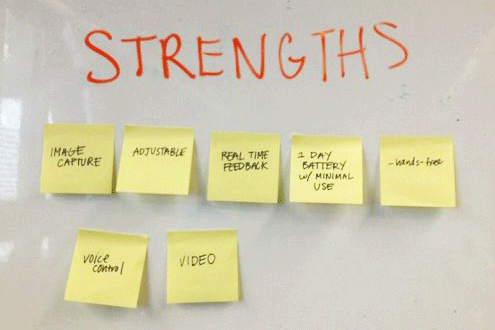 STRENGTHS
IMAGE
CAPTURE
ADJUSTABLE
REAL TIME
FEEDBACK
1 DAY
BATTERY
W/ MINIMAL
USE
-hands-free
Voice
control
VIDEO